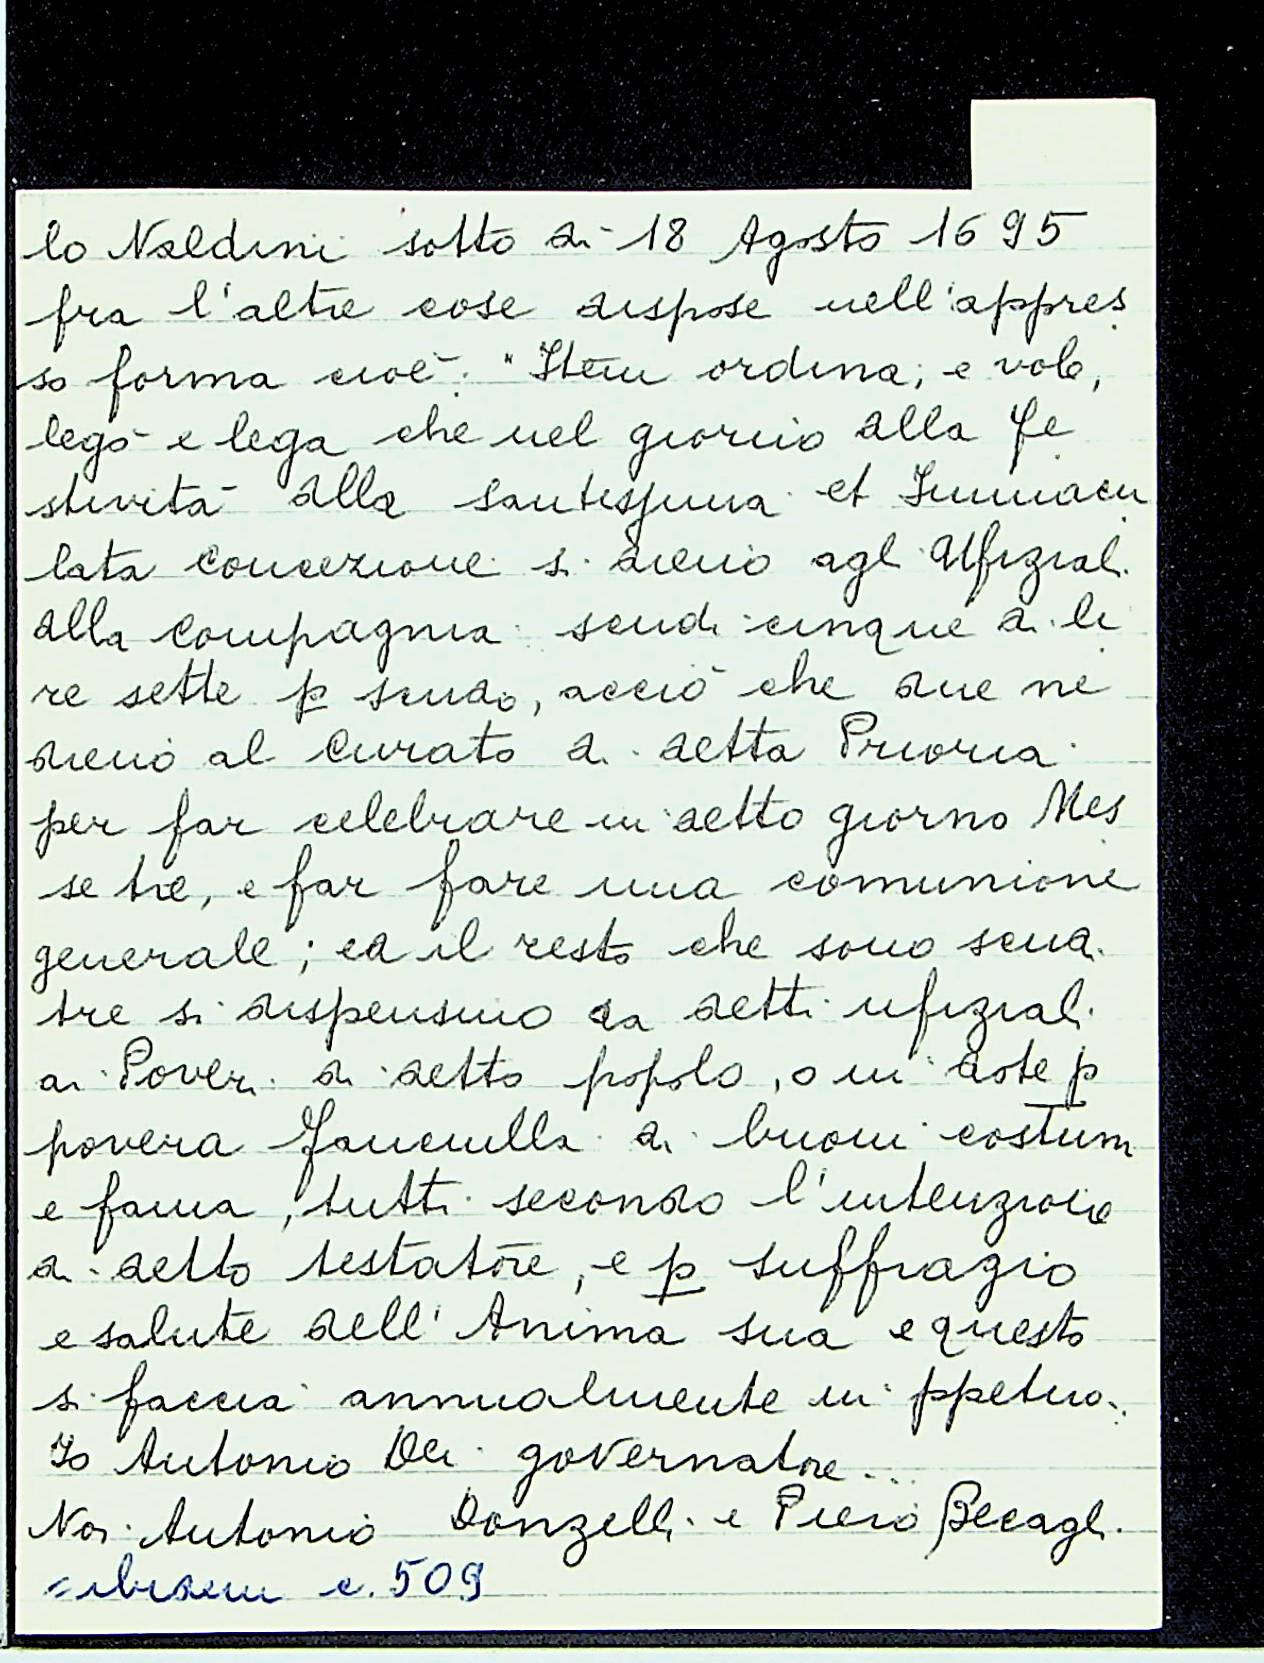 lo Naldini sotto dì 18 Agosto 1695
fra l'altre cose dispose nell'appres
so forma cioè. "Item ordina, e vole,
legò e lega che nel giorno della fe
stività della santissima et Immacu
lata Concezione si dieno agl Ufizial.
della Compagnia scudi cinque di li
re sette p scudo, acciò che due ne
dieno al Curato di detta Prioria
per far celebrare in detto giorno Mes
se tre, e far fare una comunione
generale; ed il resto che sono scudi
tre si dispensino da detti ufiziali
ai Poveri di detto popolo, o in dote p
povera fanciulla di buoni costum
e fama, tutti secondo l'intenzione
di detto testatore, e p suffragio
e salute dell'Anima sua e questo
si faccia annualmente in ppetuo..
Io Antonio Dei governatore...
Noi Antonio Donzelli e Piero Becagli.
= ibidem c. 509